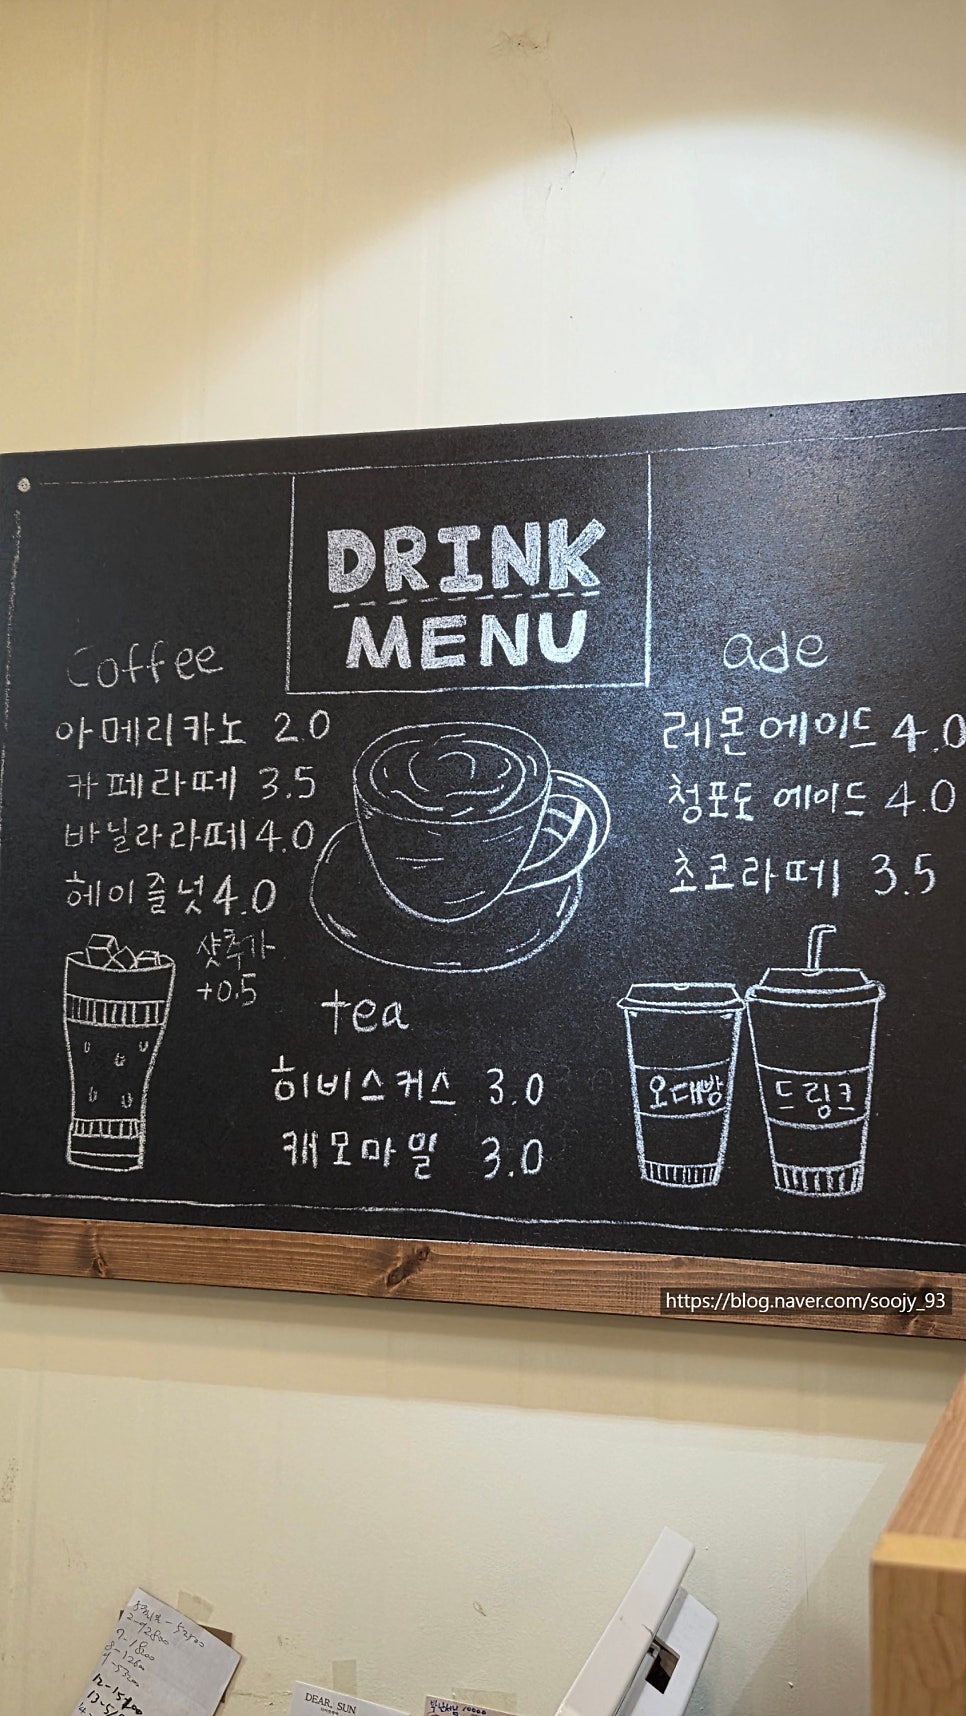 DRINK
MENU
Coffee
아메리카노 2.0
카페라떼 3.5
바닐라라떼 4.0
헤이즐넛 4.0
샷추가
+0.5
ade
레몬에이드 4.0
청포도 에이드 4.0
초코라떼 3.5
tea
히비스커스 3.0
캐모마일 3.0
오대방
드링크
https://blog.naver.com/soojy_93
DEAR, SUN